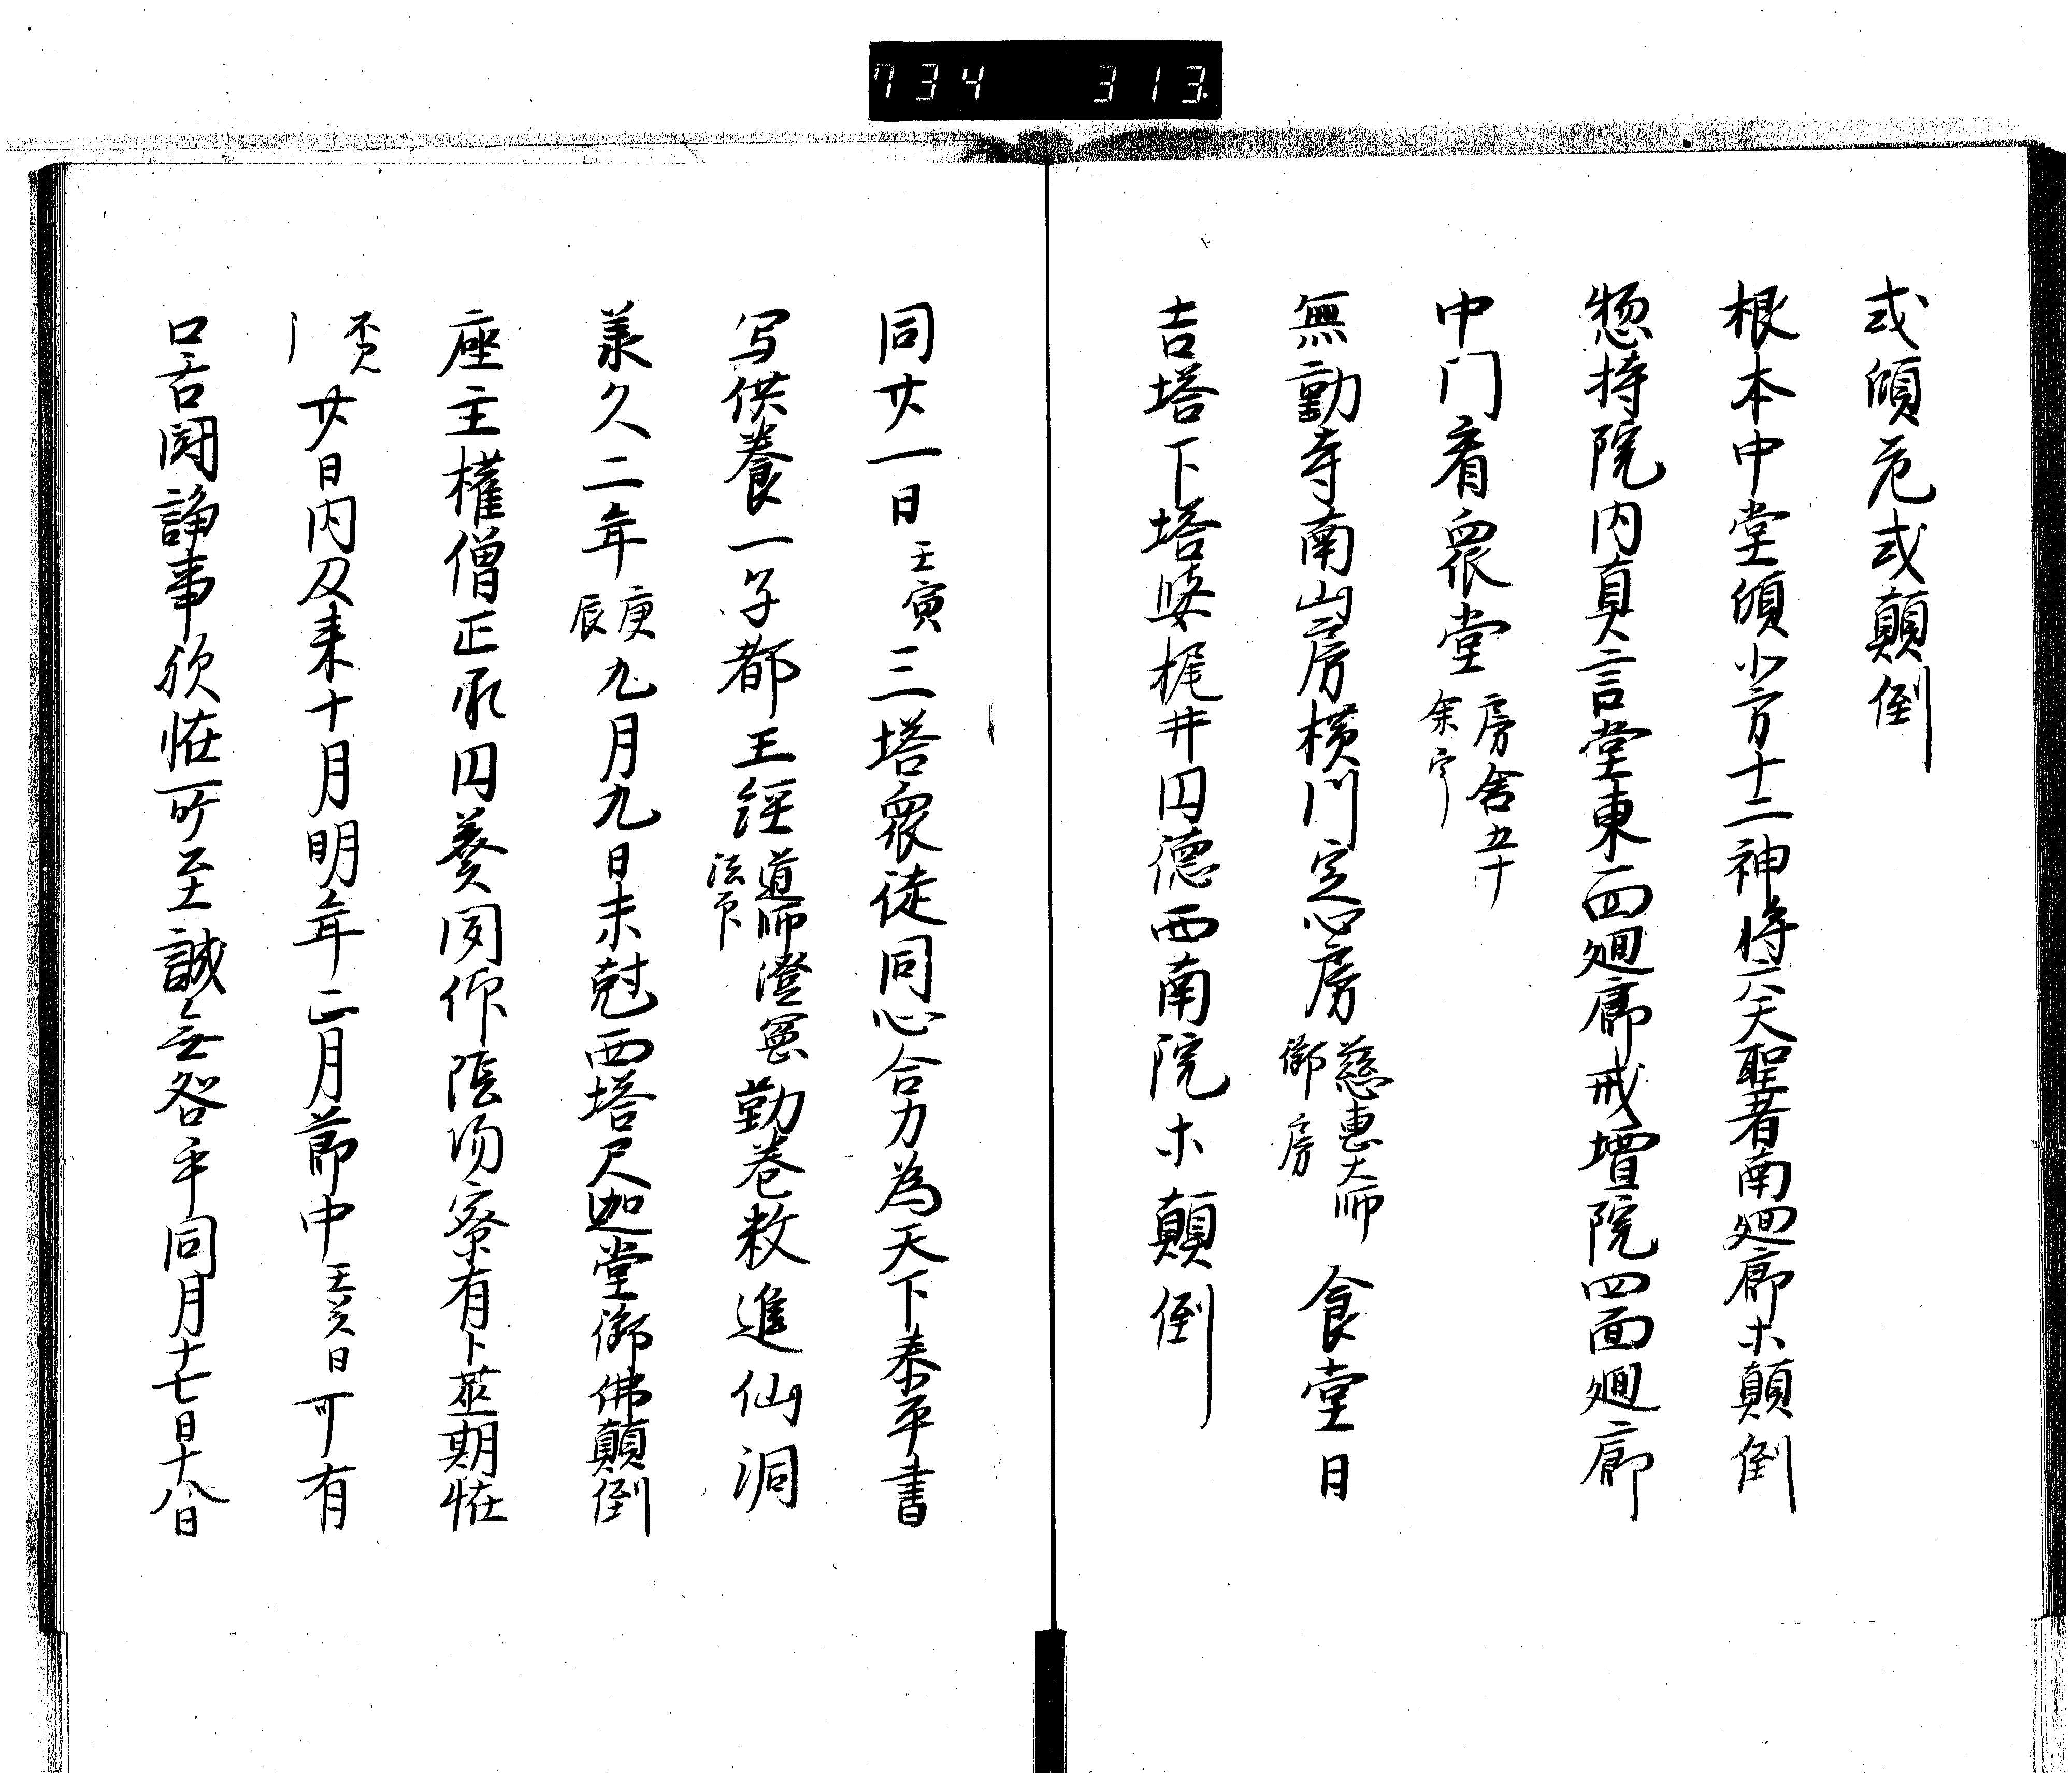 734 313
或傾危或顛倒
根本中堂傾北方十二神将六天聖者南廻廊木顛倒
惣持院内真言堂東面廻廊戒壇院四面廻廊
中门看衆堂房舎五十余宇
無動寺南山房横川定心房慈惠大师御房食堂日
吉塔下塔婆梶井円德西南院木顛倒
同廿一日壬寅三塔衆徒同心合力為天下泰平書
写供養一字都王経道师澄憲法印勤卷数進仙洞
承久二年庚辰九月九日未尅西塔尺迦堂御佛顛倒
座主權僧正承円奏聞仰陰陽寮有卜莁期恠
廿日内及来十月明年正月節中壬癸日可有
口舌闘諍事欤恠所至誠無咎乎同月十七日十八日